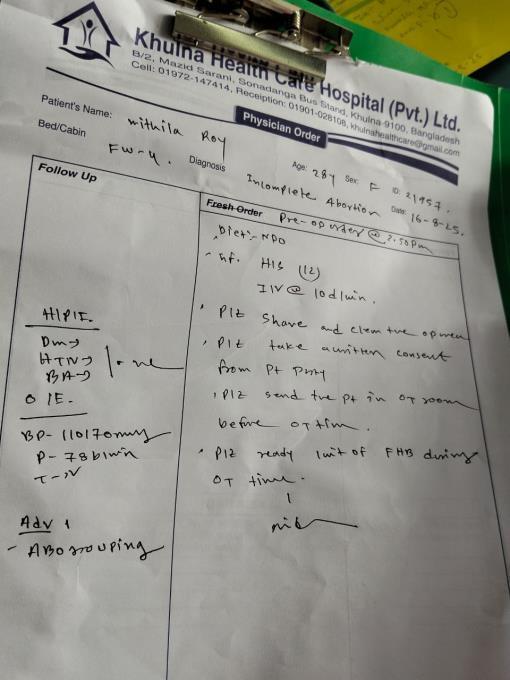 Khulna Health Care Hospital (Pvt.) Ltd.
B/2, Mazid Sarani, Sonadanga Bus Stand, Khulna-9100, Bangladesh
Cell: 01972-147414, Receiption: 01901-028108, khulnahealthcare@gmail.com
Physician Order
Patient's Name: Mithila Roy Age: 28y Sex: F ID: 21957.
Bed/Cabin FW-4. Diagnosis Incomplete Abortion Date: 16-8-25.
Follow Up
Fresh Order Pre-op order @ 2.50pm
Diet:- NPO
- Inf. H/S (1L)
I/V @ 10d/min.
Plz Share and clem the
Plz take a written consent
from pt party
Plz send the pt in OT room
before OT time.
Plz ready 1 unit of FHB during
OT time.
H/P/I.
Dm→
HTN→
BA→
O/E.
BP- 110/70mmg
P- 78b/min
T-→N
Adv:
- ABO grouping